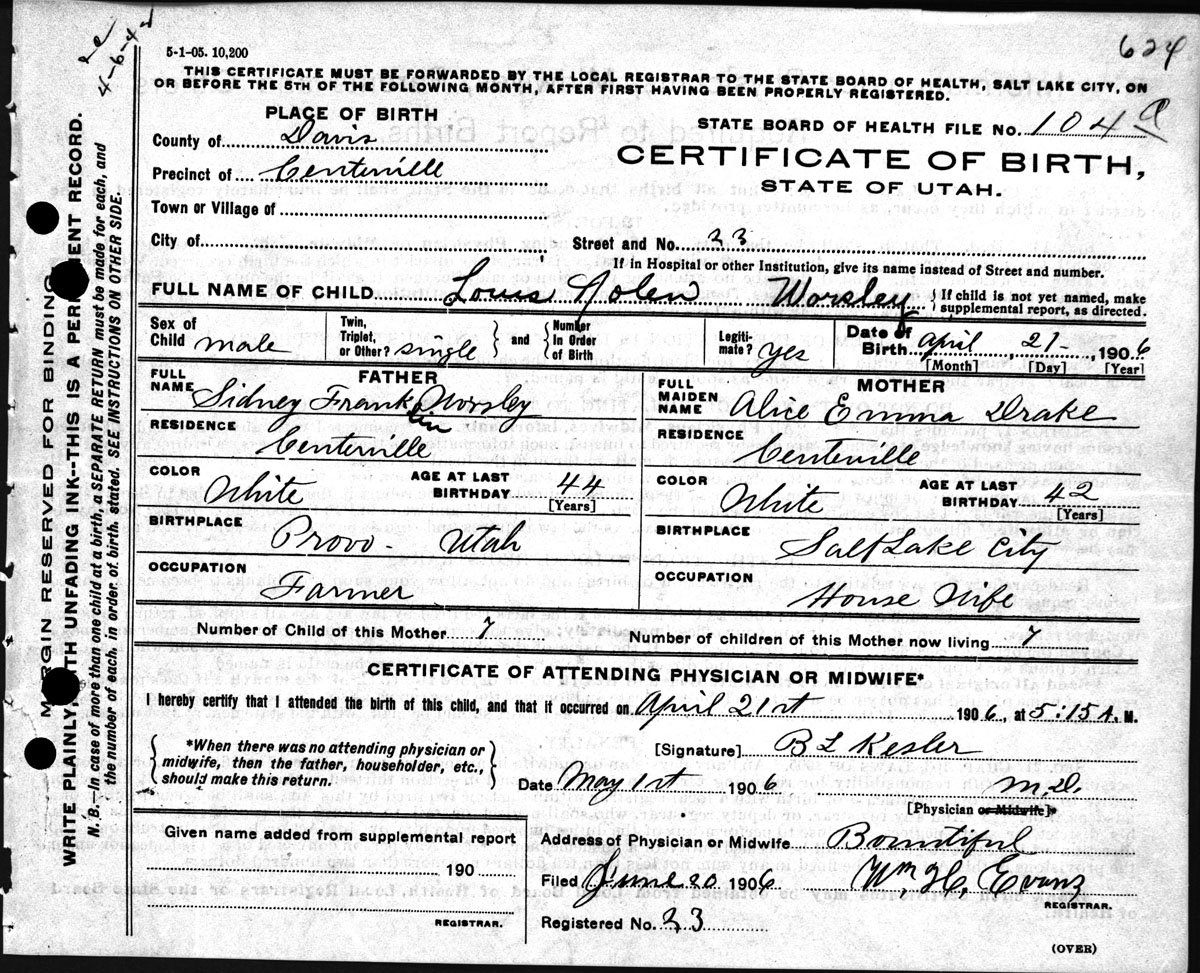 5-1-05. 10,200
624
4-6-4
THIS CERTIFICATE MUST BE FORWARDED BY THE LOCAL REGISTRAR TO THE STATE BOARD OF HEALTH, SALT LAKE CITY, ON
OR BEFORE THE 5TH OF THE FOLLOWING MONTH, AFTER FIRST HAVING BEEN PROPERLY REGISTERED.
PLACE OF BIRTH
County of Davis
Precinct of Centerville
Town or Village of
City of
STATE BOARD OF HEALTH FILE No. 104
CERTIFICATE OF BIRTH,
STATE OF UTAH.
Street and No. 23
If in Hospital or other Institution, give its name instead of Street and number.
FULL NAME OF CHILD Louis Nolen Worsley { If child is not yet named, make
supplemental report, as directed.
Sex of Child male
Twin, Triplet, or Other? single } and { Number In Order of Birth
Legitimate? yes
Date of Birth April 21, 1906
[Month] [Day] [Year]
FATHER
FULL NAME Sidney Franklin Worsley
RESIDENCE Centerville
COLOR White AGE AT LAST BIRTHDAY 44
[Years]
BIRTHPLACE Provo - Utah
OCCUPATION Farmer
MOTHER
FULL MAIDEN NAME Alice Emma Drake
RESIDENCE Centerville
COLOR White AGE AT LAST BIRTHDAY 42
[Years]
BIRTHPLACE Salt Lake City
OCCUPATION House Wife
Number of Child of this Mother 7 Number of children of this Mother now living 7
CERTIFICATE OF ATTENDING PHYSICIAN OR MIDWIFE*
I hereby certify that I attended the birth of this child, and that it occurred on April 21st 1906, at 5:15 A. M.
{ *When there was no attending physician or
midwife, then the father, householder, etc.,
should make this return. }
[Signature] B L Kesler
Date May 1st 1906 M.D.
[Physician or Midwife]*
Given name added from supplemental report
190
REGISTRAR.
Address of Physician or Midwife Bountiful
Filed June 20 1906 Wm H. Evans
REGISTRAR.
Registered No. 23
(OVER)
MARGIN RESERVED FOR BINDING
WRITE PLAINLY, WITH UNFADING INK--THIS IS A PERMANENT RECORD.
N. B.—In case of more than one child at a birth, a SEPARATE RETURN must be made for each, and
the number of each, in order of birth, stated. SEE INSTRUCTIONS ON OTHER SIDE.